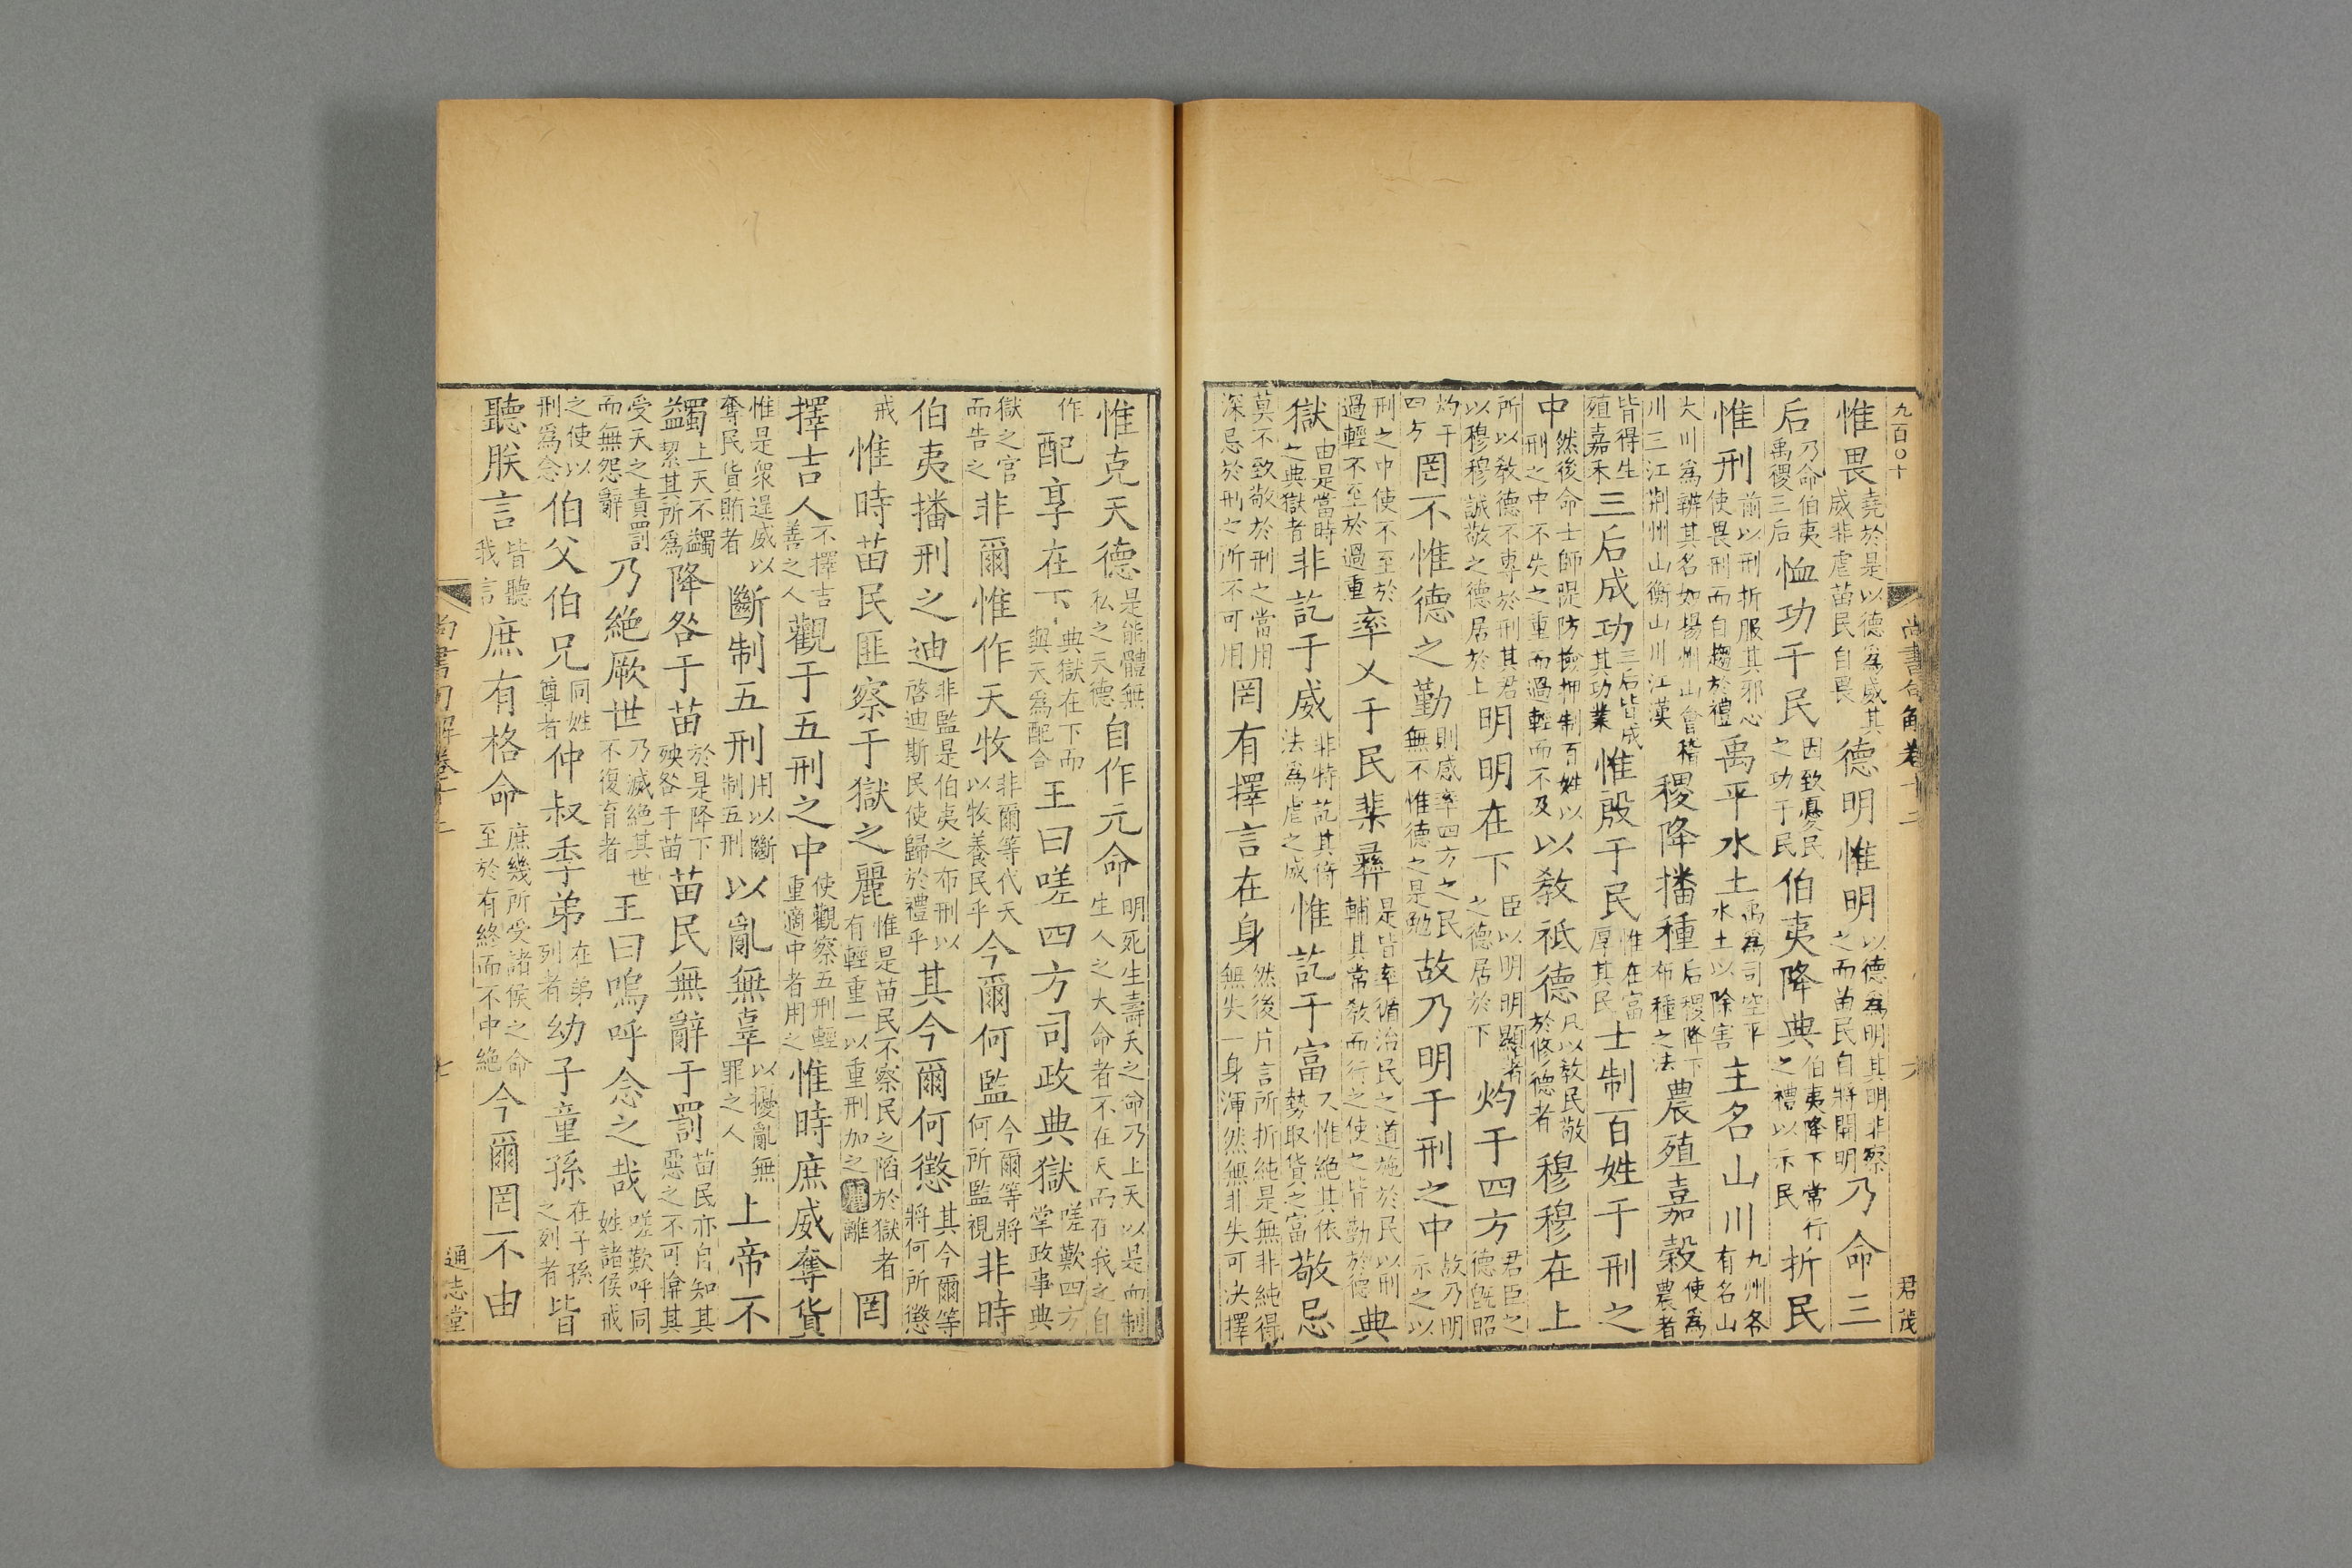 九百〇十
尚書句解卷十二
六
君茂
惟畏堯於是以德爲威其威非虐苗民自畏德明惟明以德爲明其明非察之而苗民自將開明乃命三
后乃命伯夷禹稷三后恤功于民因致憂民之功于民伯夷降典伯夷降下常行之禮以示民折民
惟刑前以刑折服其邪心使畏刑而自趨於禮禹平水土禹爲司空平水土以除害主名山川九州各有名山
大川爲辨其名如揚州山會稽川三江荆州山衡山川江漢稷降播種后稷降下布種之法農殖嘉穀使爲農者
皆得生殖嘉禾三后成功三后皆成其功業惟殷于民惟在富厚其民士制百姓于刑之
中然後命士師隄防撿押制百姓以刑之中不失之重而過輕而不及以敎祗德凡以敎民敬於修德者穆穆在上
所以敎德不專於刑其君以穆穆誠敬之德居於上明明在下臣以明明顯著之德居於下灼于四方君臣之德旣昭
灼于四方罔不惟德之勤則感率四方之民無不惟德之是勉故乃明于刑之中故乃明示之以
刑之中使不至於過輕不至於過重率乂于民棐彝是皆率循治民之道施於民以刑輔其常敎而行之使之皆勤於德典
獄由是當時之典獄者非訖于威非特訖其倚法爲虐之威惟訖于富又惟絶其依勢取貨之富敬忌
莫不致敬於刑之當用深忌於刑之所不可用罔有擇言在身然後片言所折純是無非純得無失一身渾然無非失可决擇
惟克天德是能體無私之天德自作元命明死生壽夭之命乃上天以是而制生人之大命者不在天而在我之自
作配享在下典獄在下而與天爲配合王曰嗟四方司政典獄嗟歎四方掌政事典
獄之官而告之非爾惟作天牧非爾等代天以牧養民乎今爾何監今爾等將何所監視非時
伯夷播刑之迪非監是伯夷之布刑以啓迪斯民使歸於禮乎其今爾何懲其今爾等將何所懲
戒惟時苗民匪察于獄之麗惟是苗民不察民之陷於獄者有輕重一以重刑加之麗離罔
擇吉人不擇吉善之人觀于五刑之中使觀察五刑輕重適中者用之惟時庶威奪貨
惟是衆逞威以奪民貨賄者斷制五刑用以斷制五刑以亂無辜以擾亂無罪之人上帝不
蠲上天不蠲㓗其所爲降咎于苗於是降下殃咎于苗苗民無辭于罰苗民亦自知其惡之不可揜其
受天之責罰而無怨辭乃絶厥世乃滅絶其世不復育者王曰嗚呼念之哉嗟歎呼同姓諸侯戒
之使以刑爲念伯父伯兄同姓尊者仲叔季弟在弟列者幼子童孫在子孫之列者皆
聽朕言皆聽我言庶有格命庶幾所受諸侯之命至於有終而不中絶今爾罔不由
尚書句解卷十二
七
通志堂